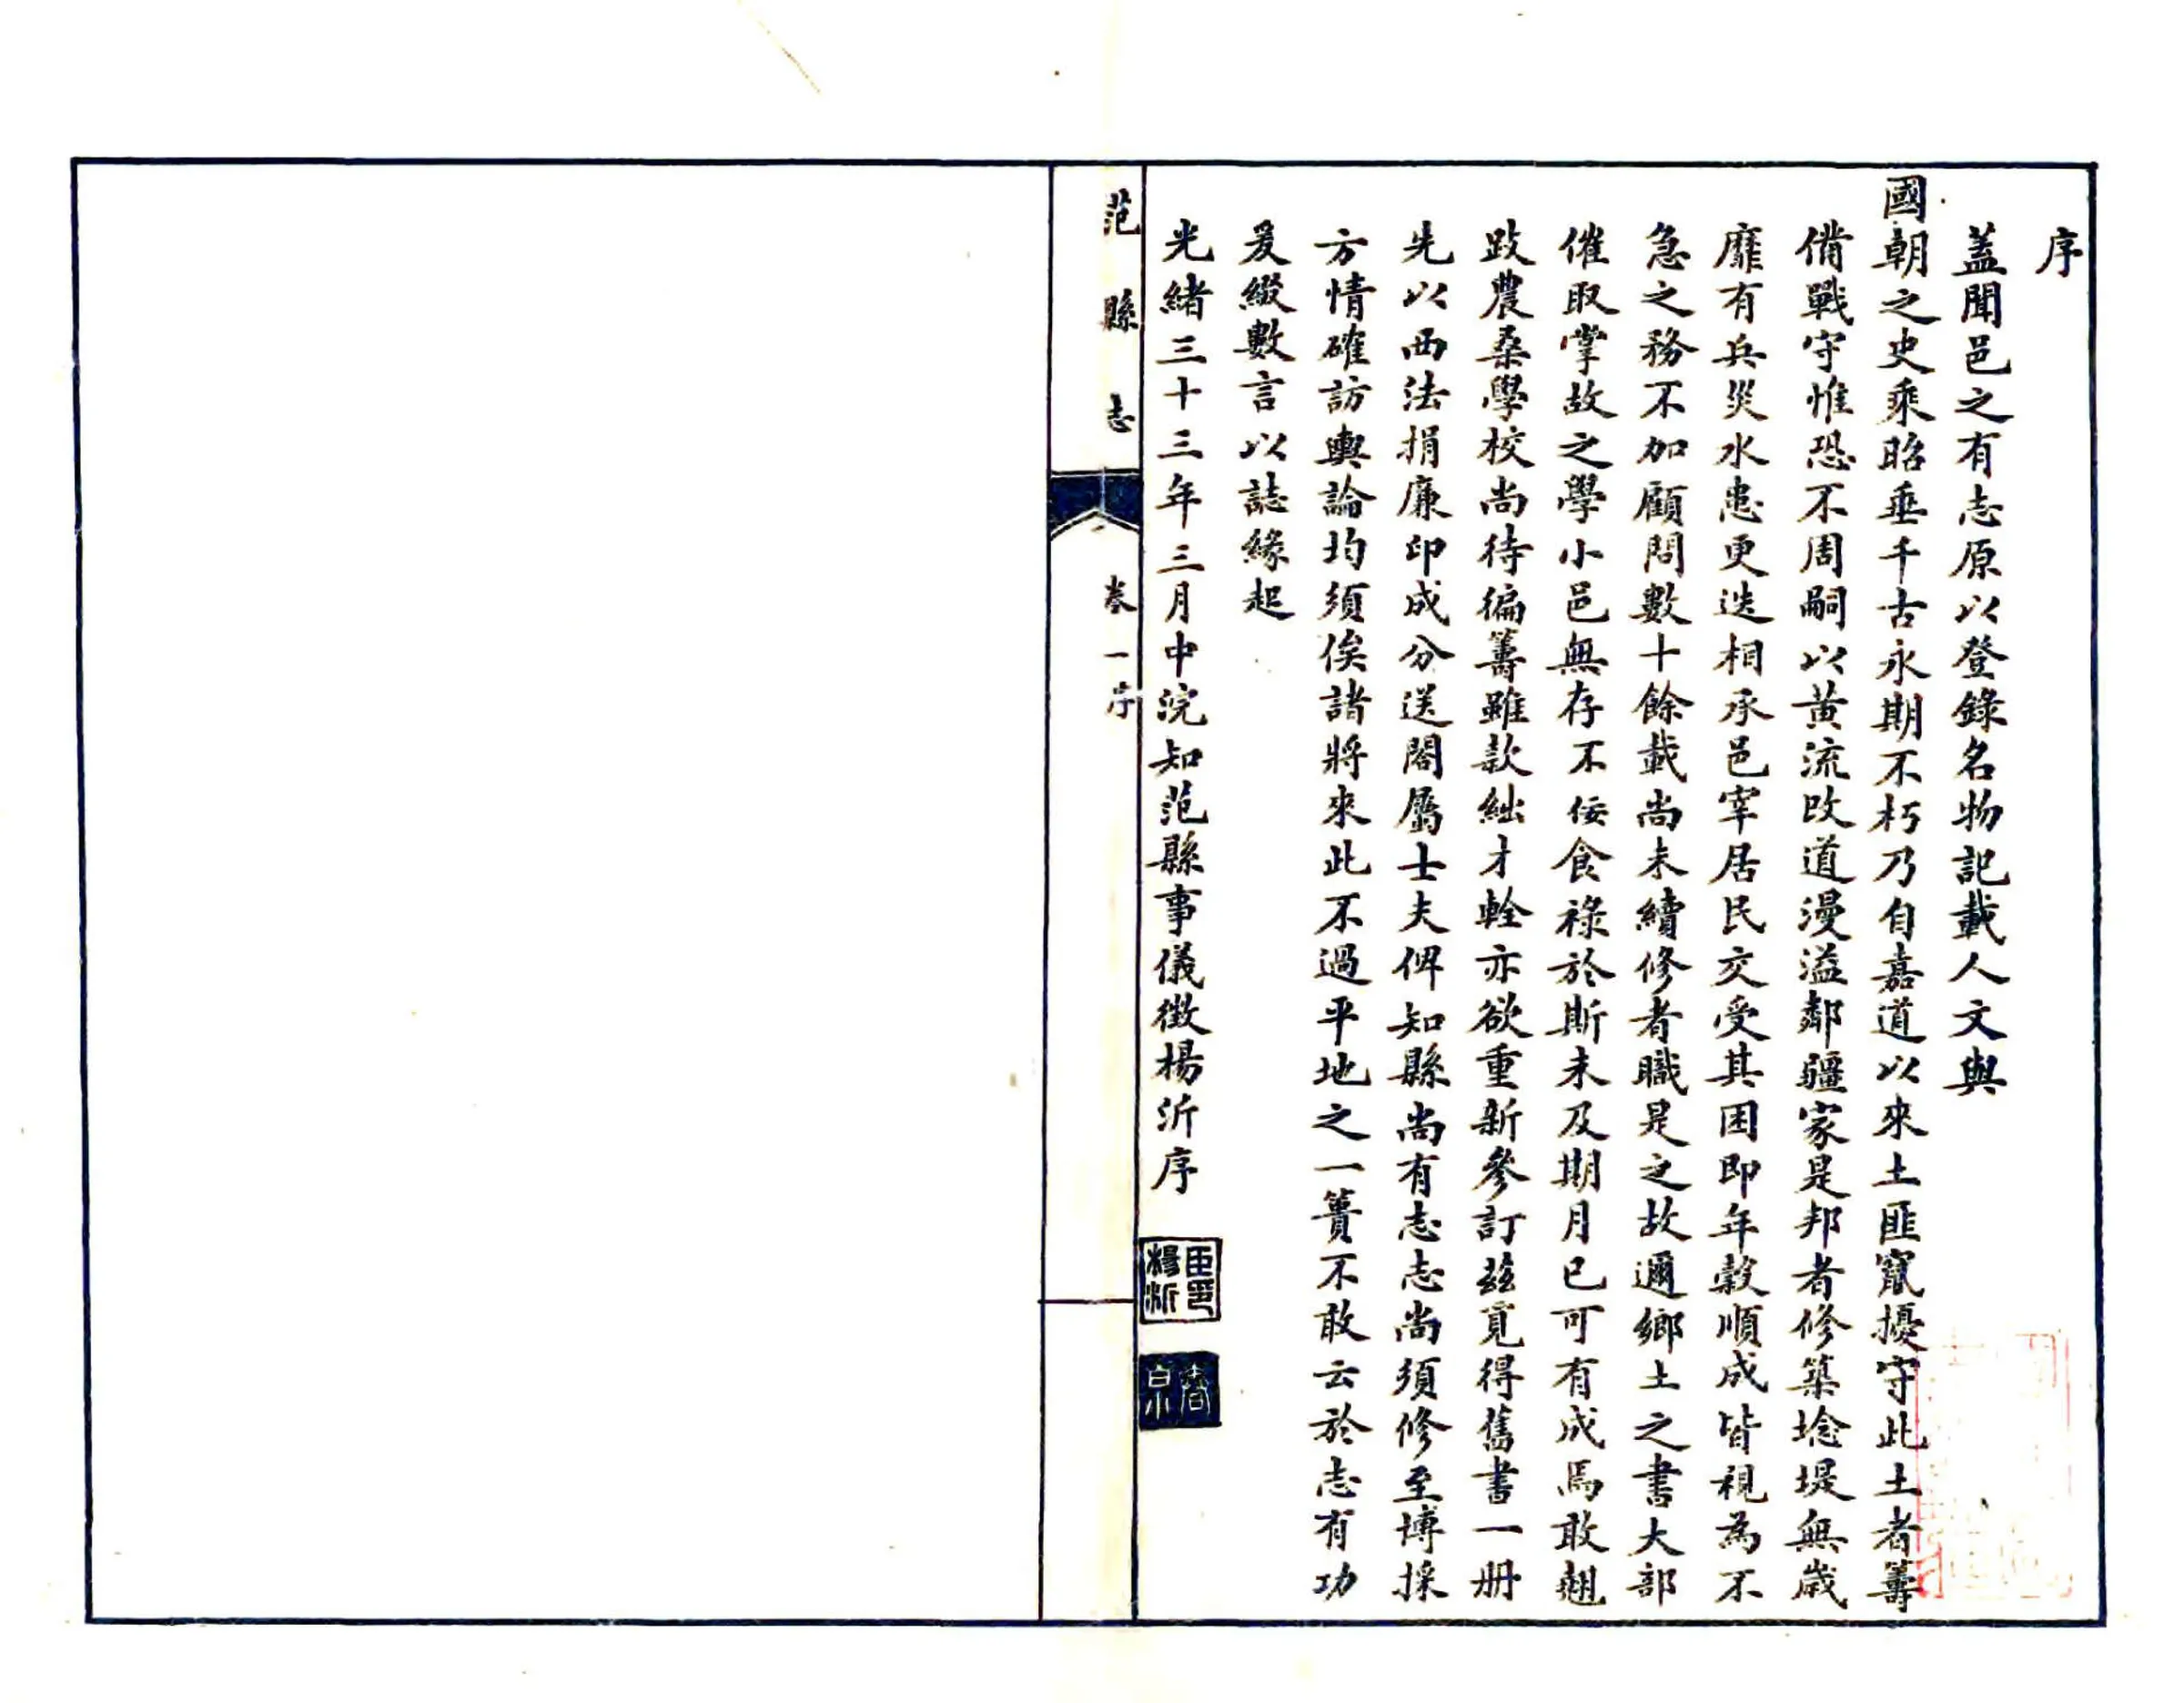 序
蓋聞邑之有志原以登錄名物記載人文與
國朝之史乘昭垂千古永期不朽乃自嘉道以來土匪竄擾守此土者籌
備戰守惟恐不周嗣以黃流改道漫溢鄰疆家是邦者修築埝堤無歲
靡有兵災水患更迭相承邑宰居民交受其困即年穀順成皆視為不
急之務不加顧問數十餘載尚未續修者職是之故邇鄉土之書大部
催取掌故之學小邑無存不佞食祿於斯未及期月已可有成焉敢趐
跂農桑學校尚待徧籌雖款絀才輇亦欲重新參訂茲覓得舊書一册
先以西法捐廉印成分送閤屬士夫俾知縣尚有志志尚須修至博採
方情確訪輿論均須俟諸將來此不過平地之一簣不敢云於志有功
爰綴數言以誌緣起
光緒三十三年三月中浣知范縣事儀徵楊沂序
臣楊沂印
范縣志
卷一序